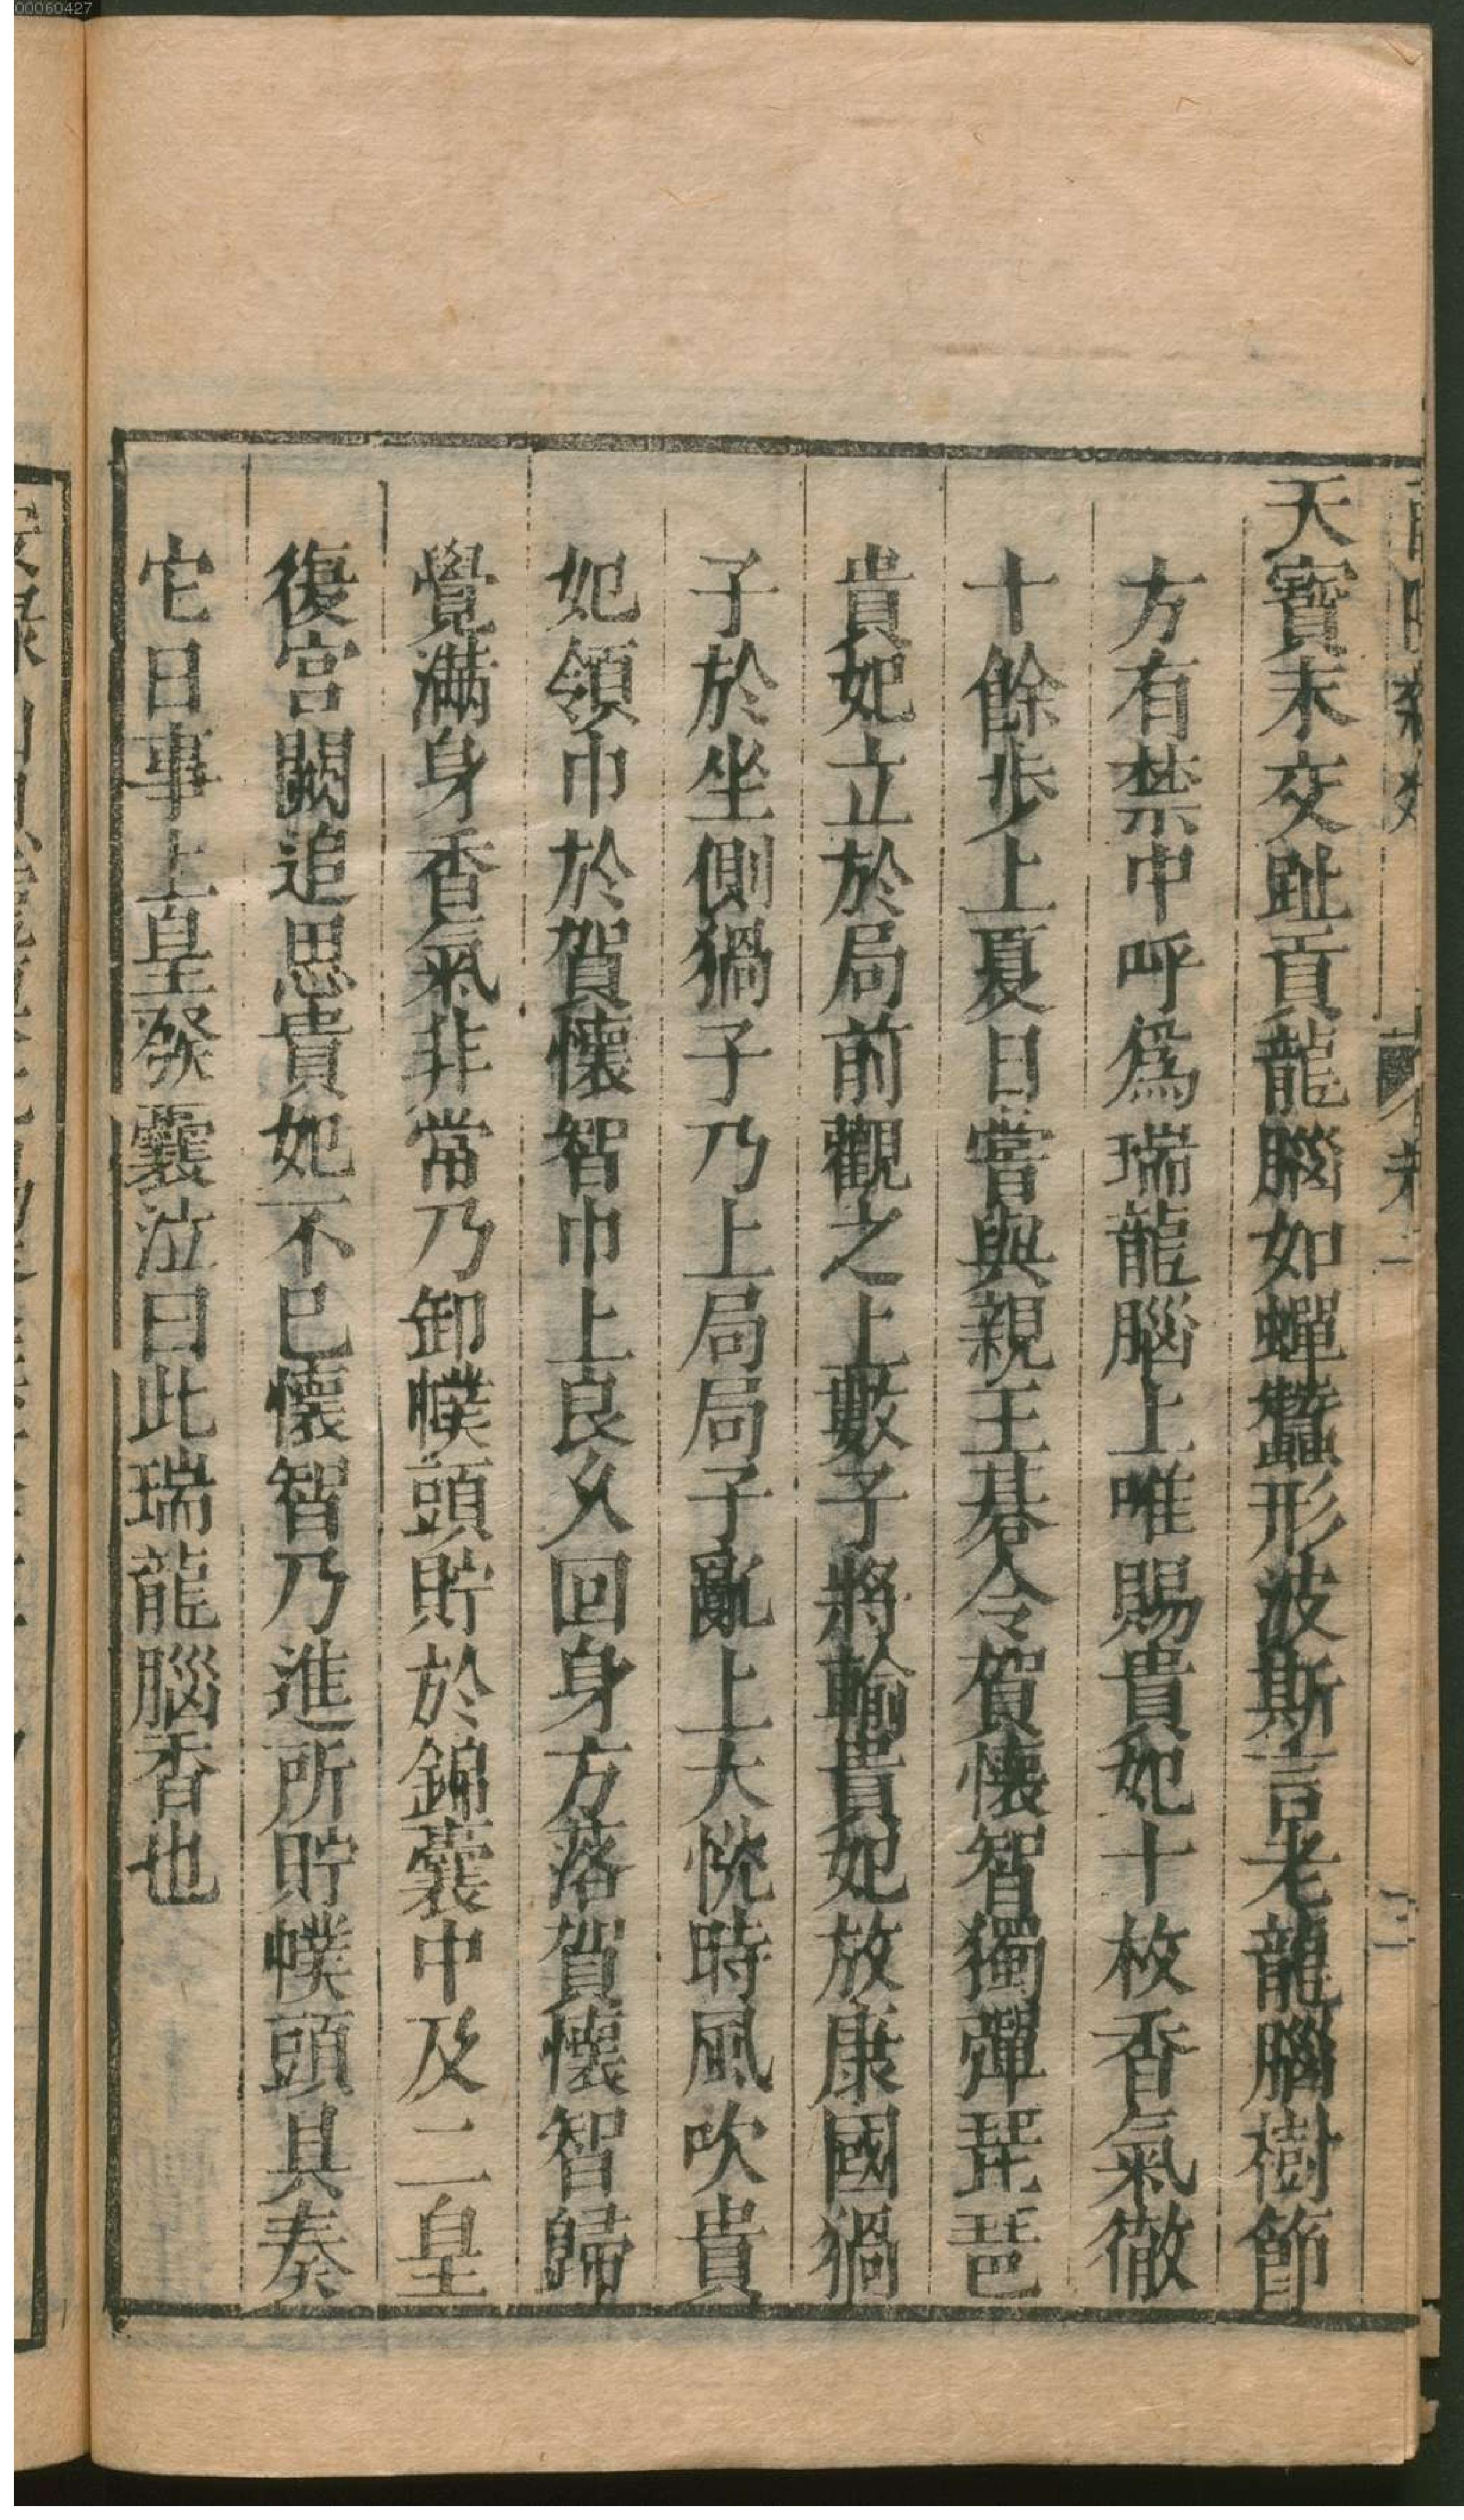 00060427
天寶末交趾貢龍腦如蟬蠶形波斯言老龍腦樹節
方有禁中呼爲瑞龍腦上唯賜貴妃十枚香氣徹
十餘步上夏日嘗與親王棊令賀懷智獨彈琵琶
貴妃立於局前觀之上數子將輸貴妃放康國猧
子於坐側猧子乃上局局子亂上大悅時風吹貴
妃領巾於賀懷智巾上良久回身方落賀懷智歸
覺滿身香氣非常乃卸幞頭貯於錦囊中及二皇
復宮闕追思貴妃不已懷智乃進所貯幞頭具奏
它日事上皇發囊泣曰此瑞龍腦香也